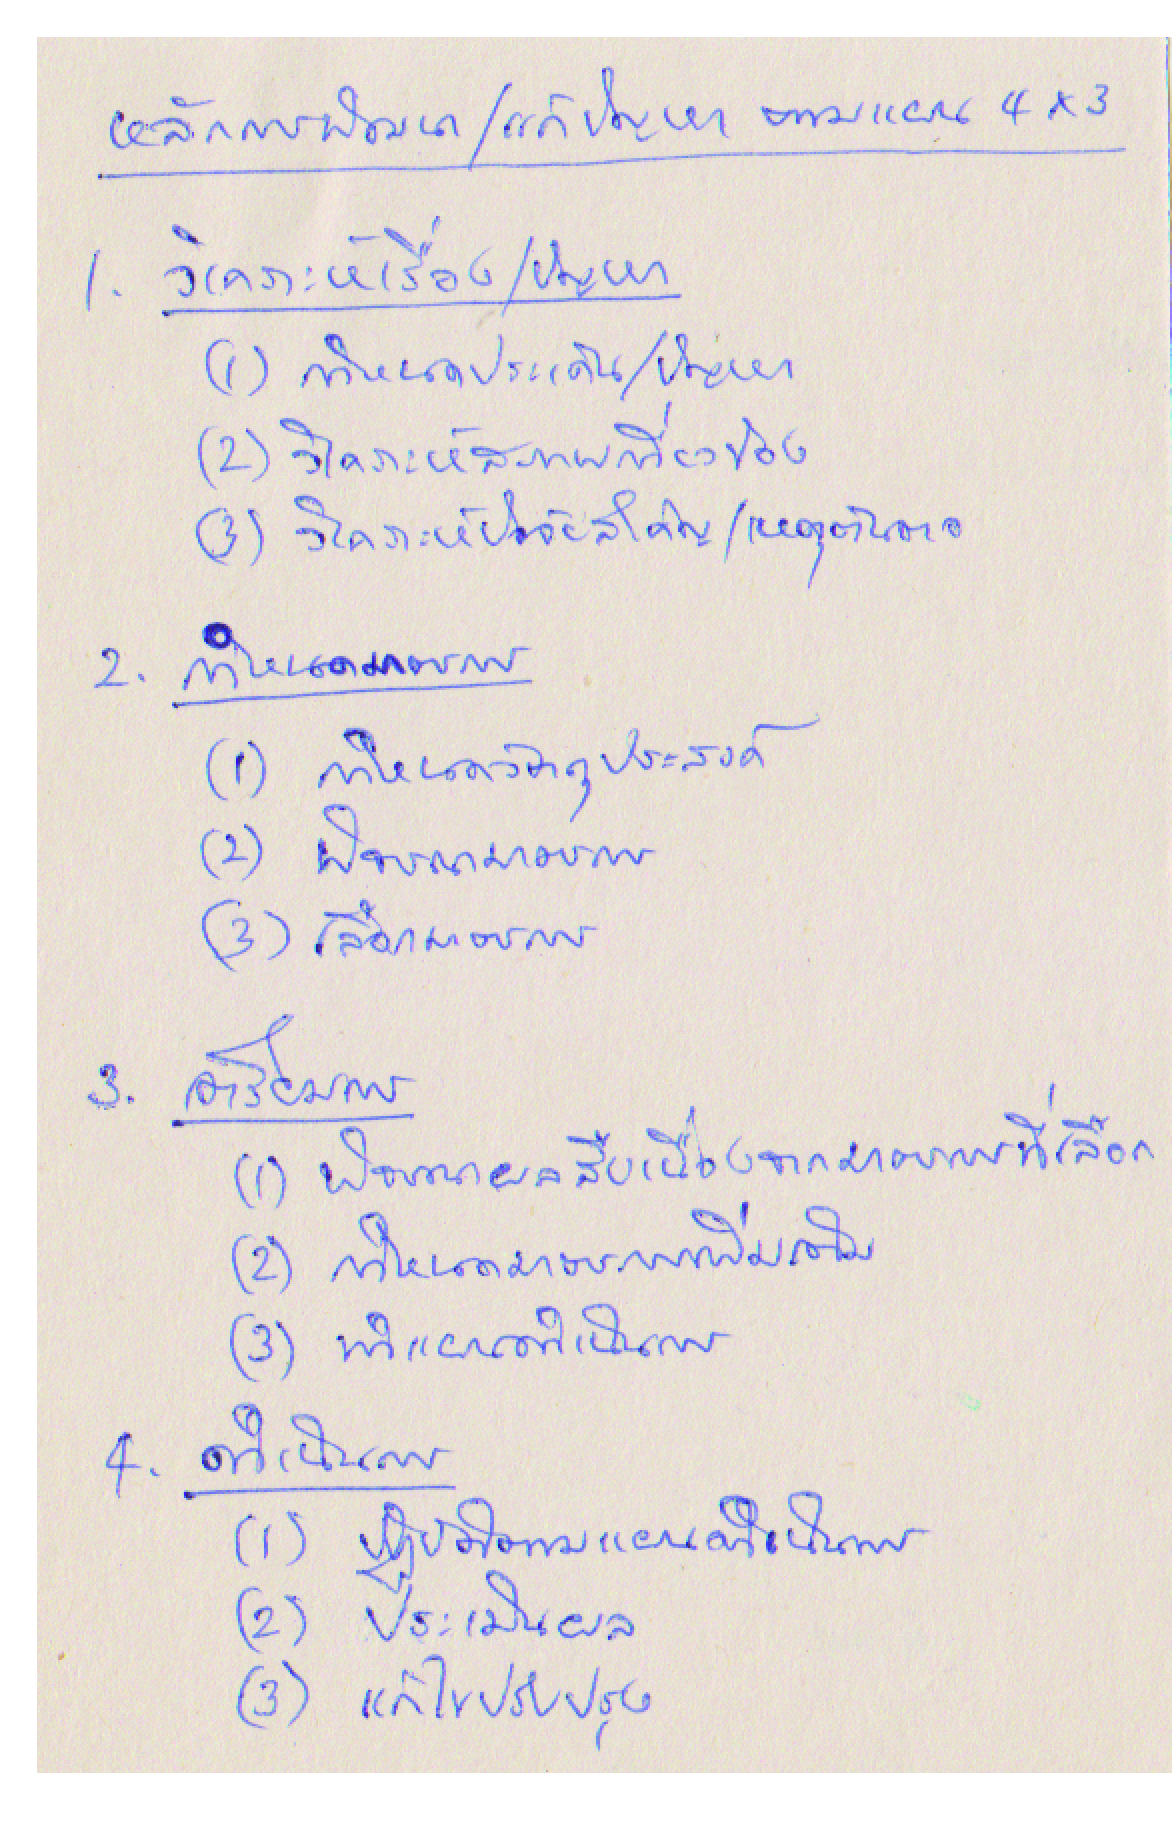 หลักการพัฒนา/แก้ปัญหา ตามแผน 4 x 3
1. วิเคราะห์เรื่อง/ปัญหา
(1) กำหนดประเด็น/ปัญหา
(2) วิเคราะห์สภาพเกี่ยวข้อง
(3) วิเคราะห์ปัจจัยสำคัญ/เหตุต้นตอ
2. กำหนดมาตรการ
(1) กำหนดวัตถุประสงค์
(2) พิจารณามาตรการ
(3) เลือกมาตรการ
3. เตรียมการ
(1) พิจารณาผลสืบเนื่องจากมาตรการที่เลือก
(2) กำหนดมาตรการเพิ่มเติม
(3) ทำแผนดำเนินการ
4. ดำเนินการ
(1) ปฏิบัติตามแผนดำเนินการ
(2) ประเมินผล
(3) แก้ไขปรับปรุง